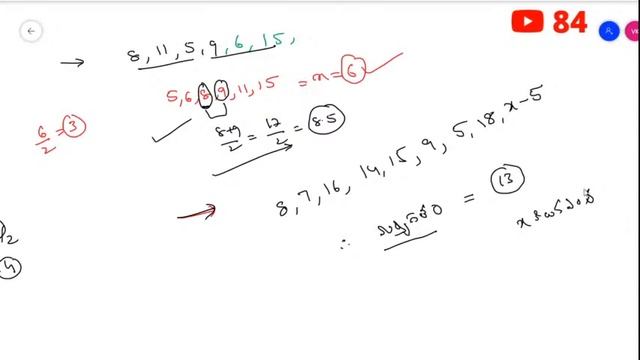 84
VK
→ 8, 11, 5, 9, 6, 15,
5, 6, 8, 9, 11, 15 = n = 6
6/2 = 3
8+9/2 = 17/2 = 8.5
→ 8, 7, 16, 14, 15, 9, 5, 18, x-5
∴ = 13
x